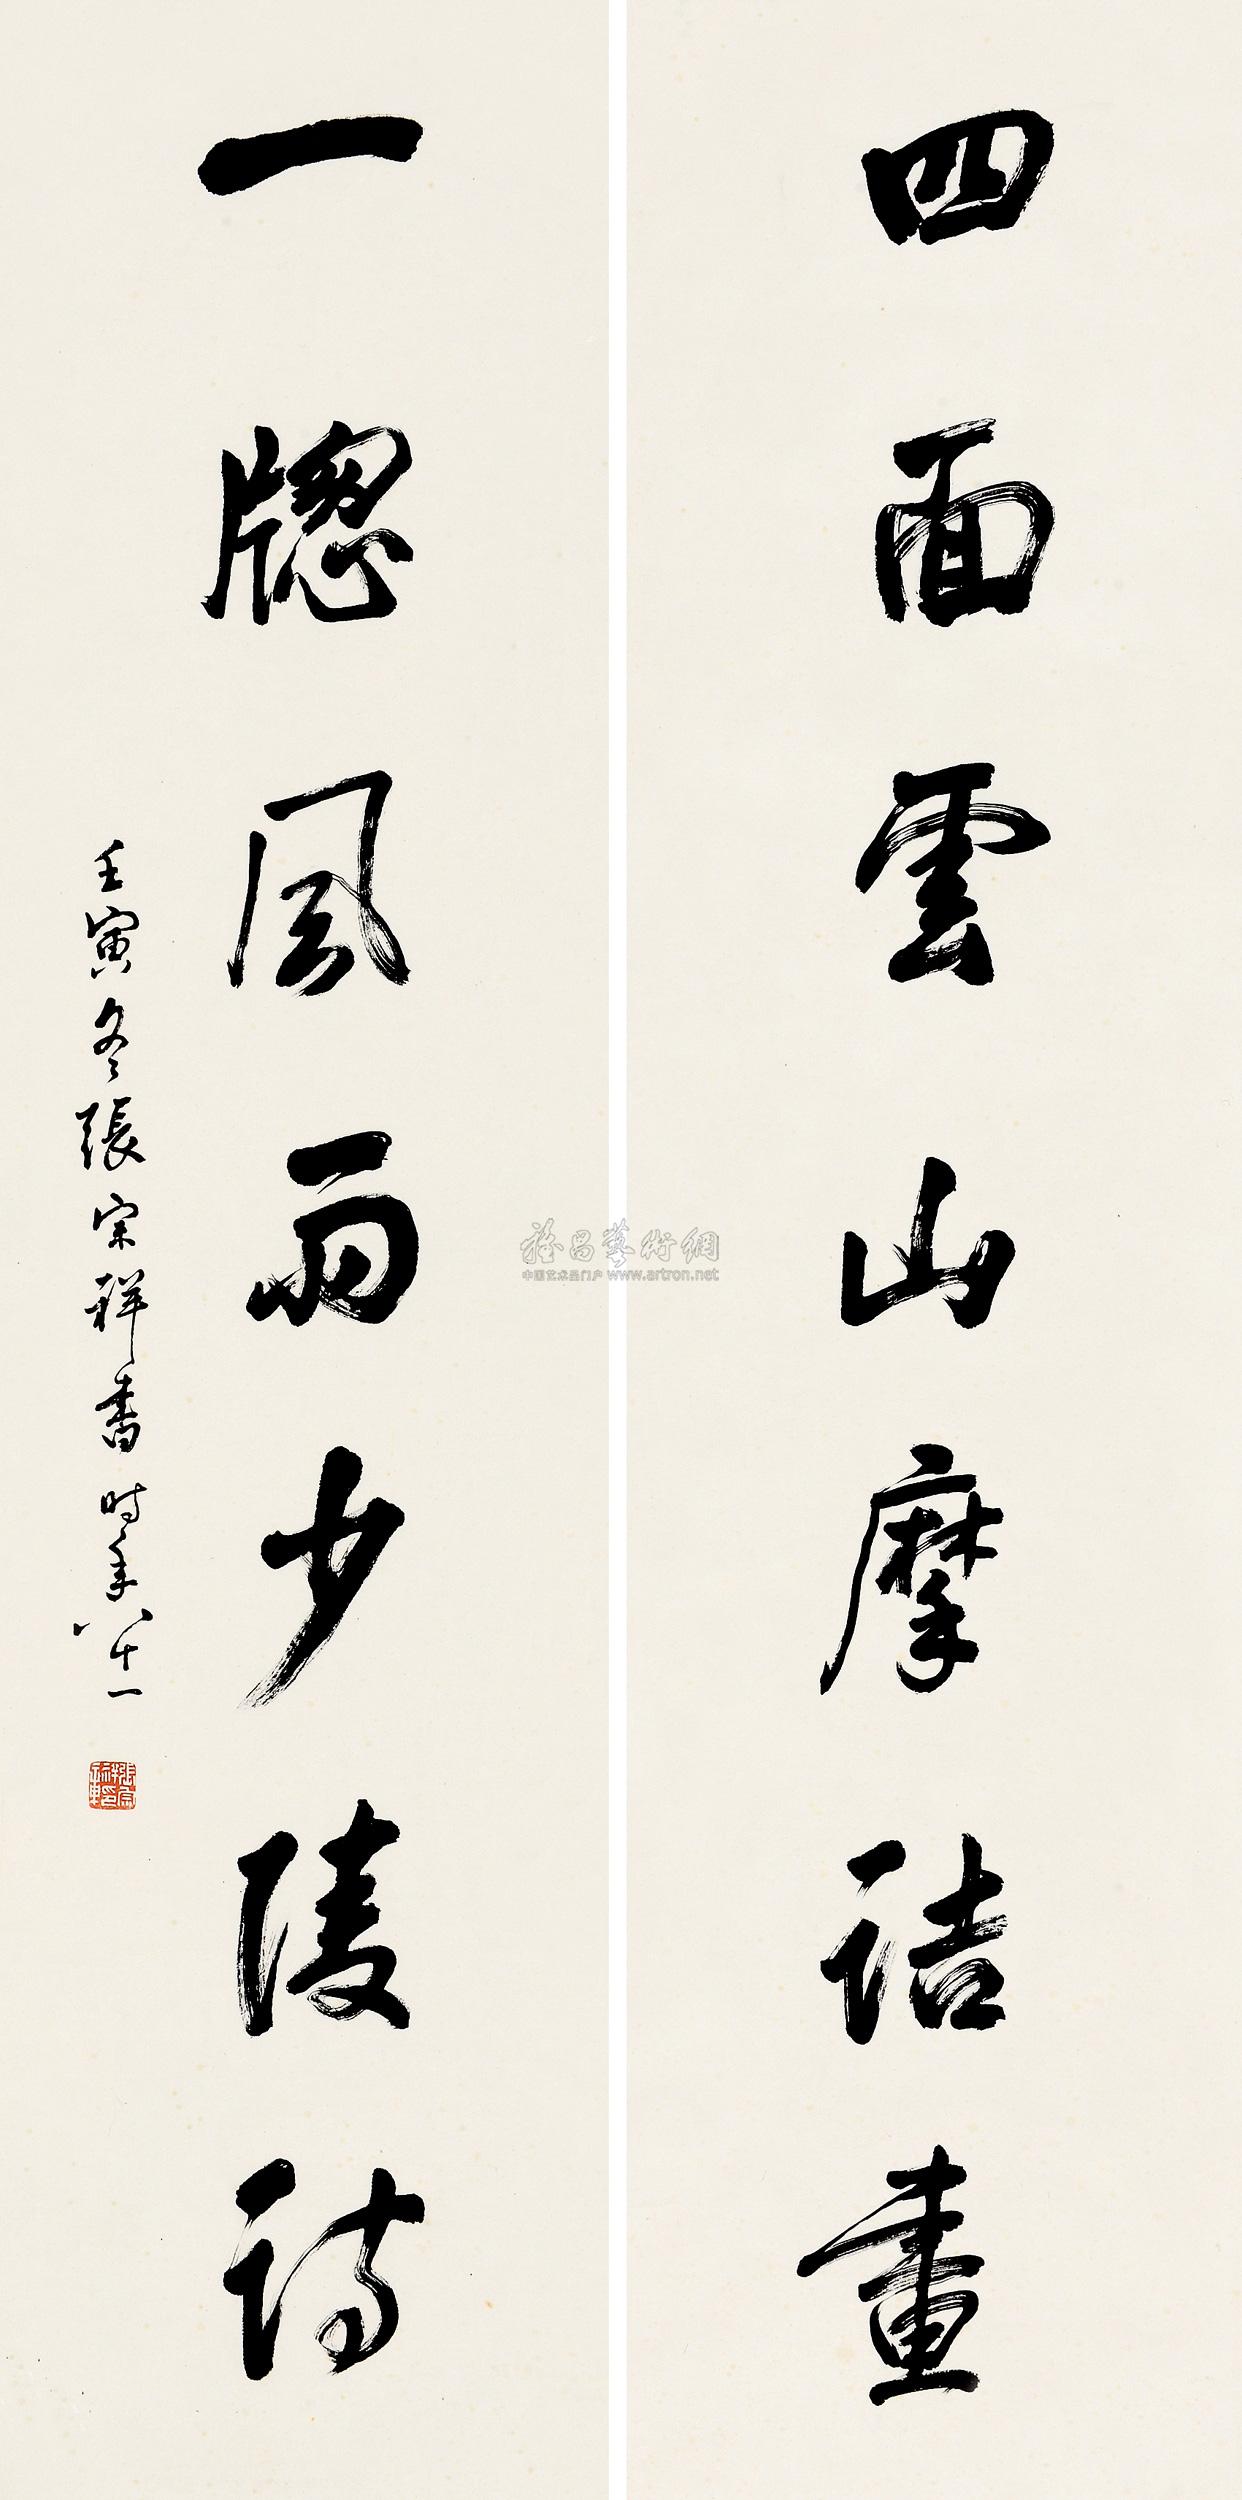 四面雲山摩詰畫
一牕風雨少陵詩
壬寅冬張宗祥書時年八十一
雅昌藝術網
中国艺术品门户 www.artron.net